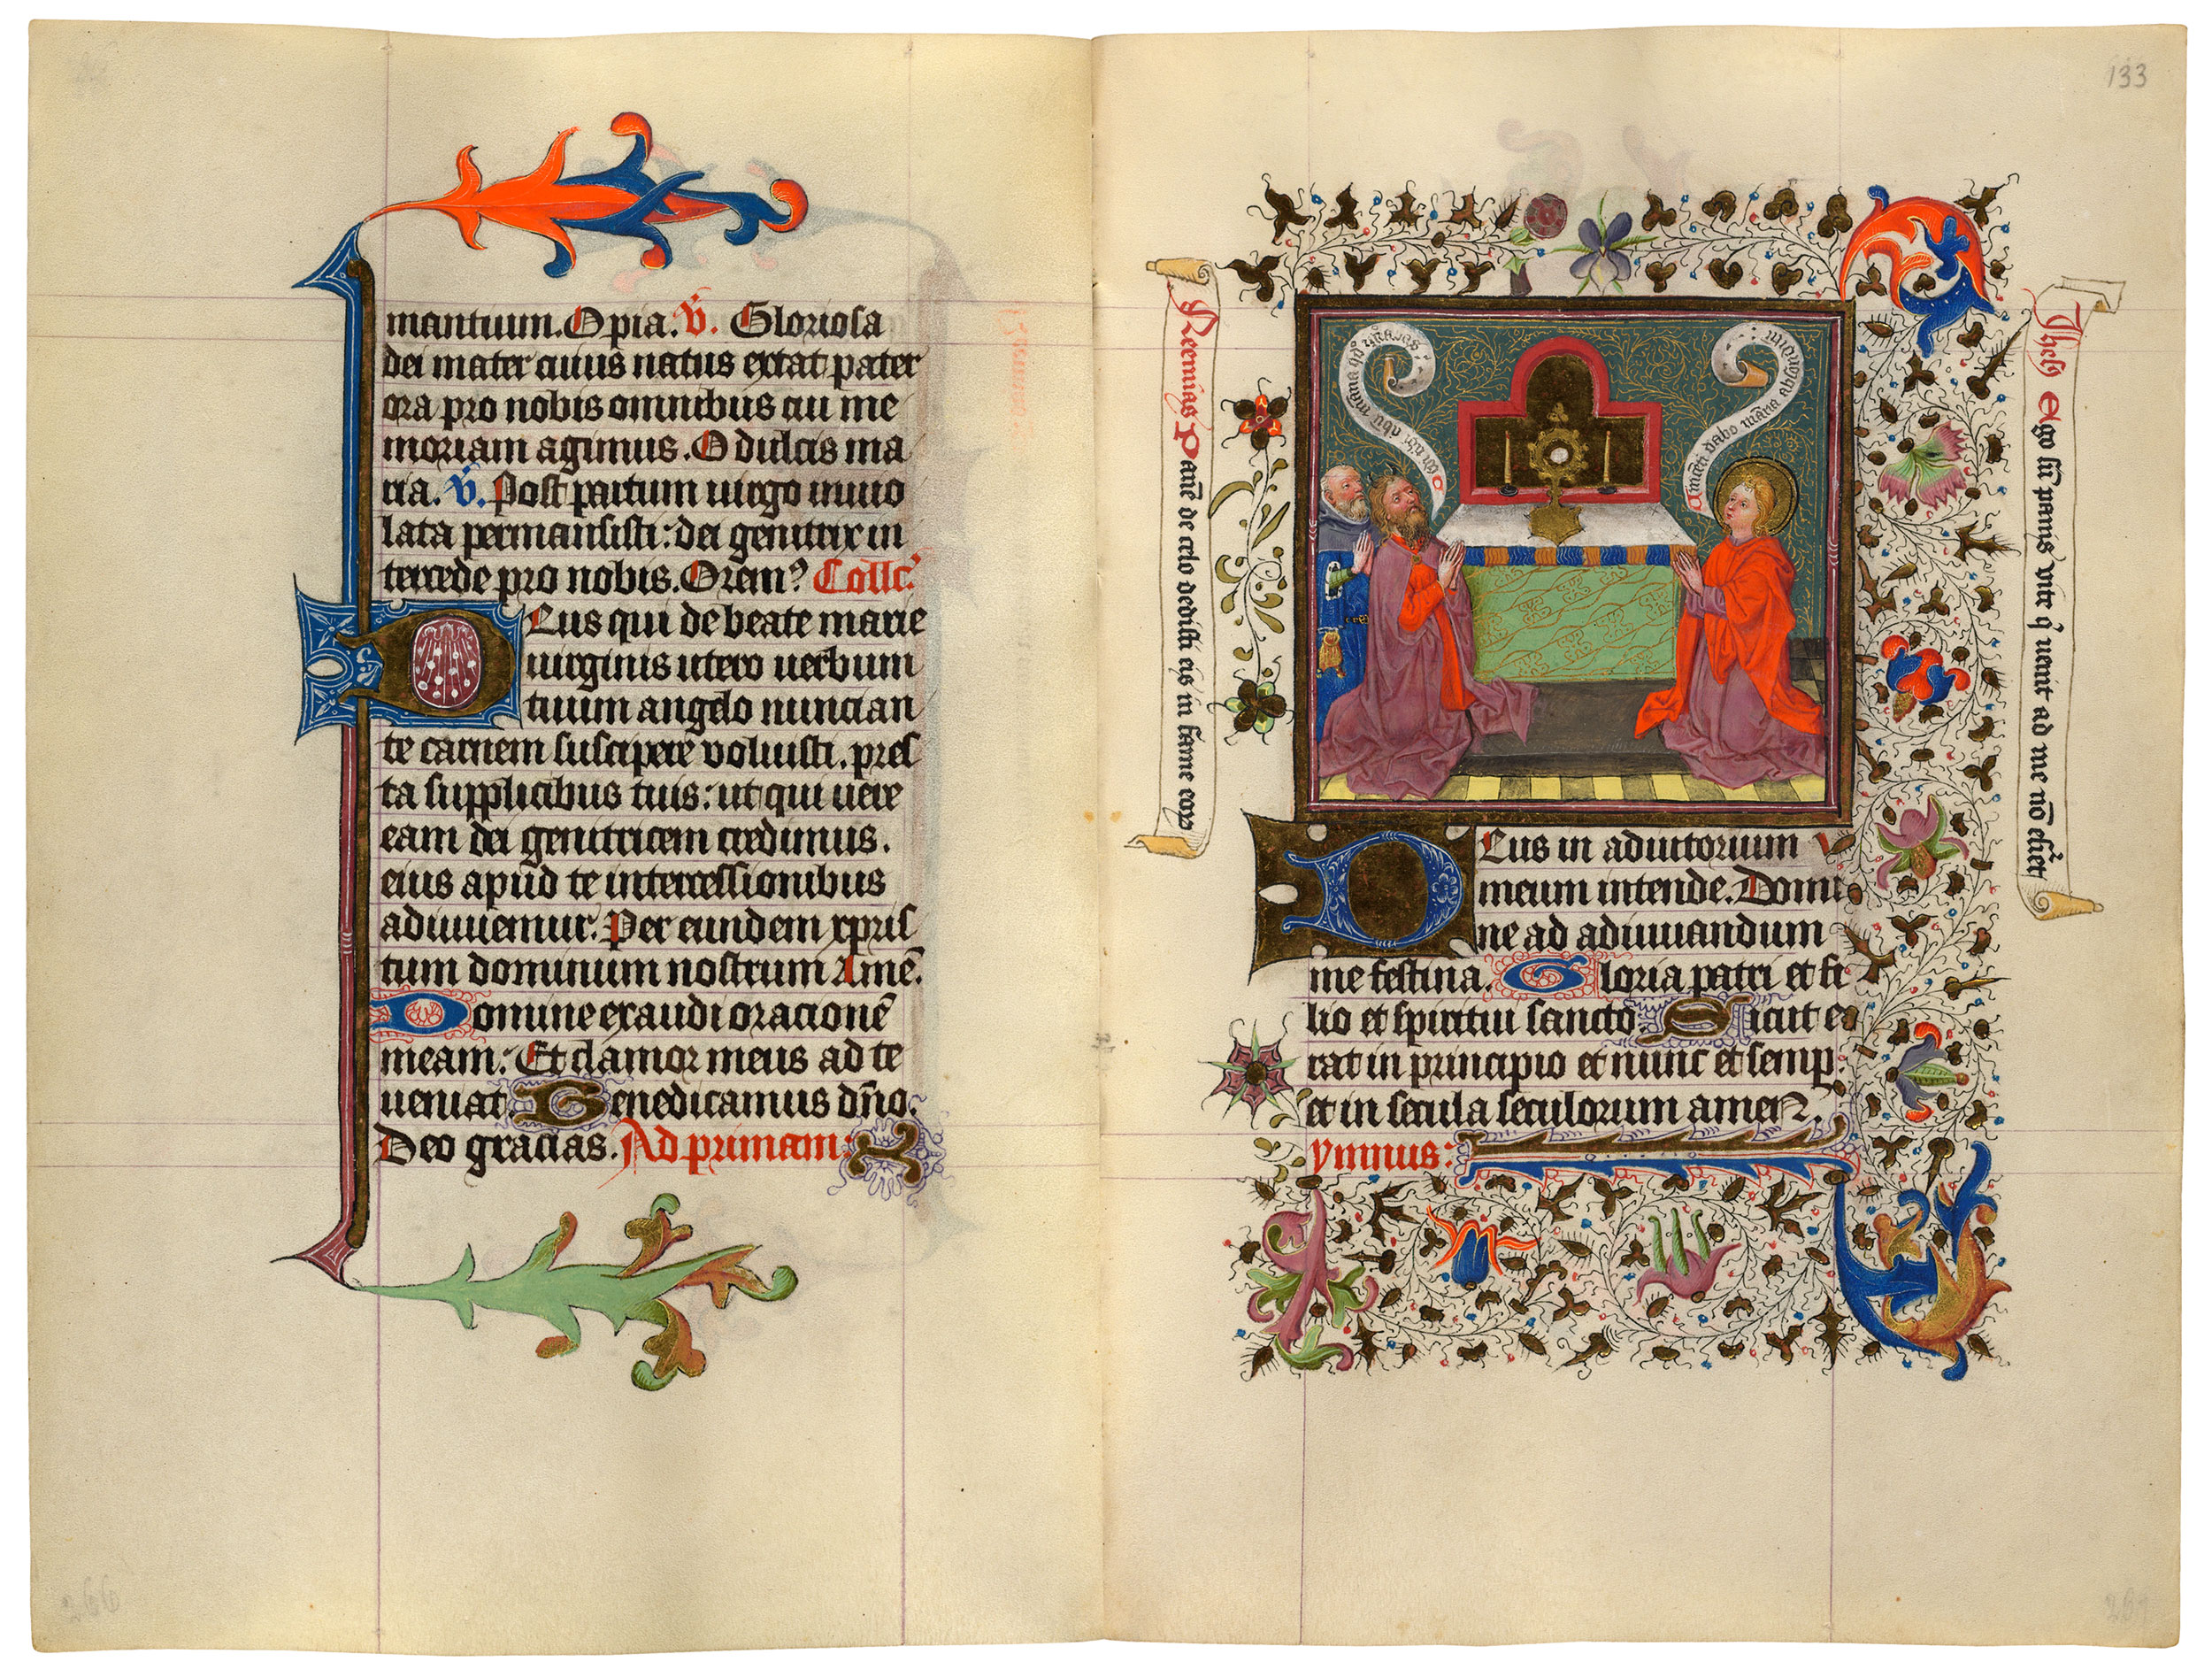 mantium. O pia. v. Gloriosa
dei mater cuius natus extat pater
ora pro nobis omnibus cui me
moriam agimus. O dulcis ma
ria. v. Post partum uirgo inuio
lata permansisti: dei genitrix in
tercede pro nobis. Orem9 Collc'
Deus qui de beate marie
uirginis utero uerbum
tuum angelo nuncian
te carnem suscipere voluisti. pres
ta supplicibus tuis: ut qui uere
eam dei genitricem credimus.
eius apud te intercessionibus
adiuuemur. Per eundem xpris
tum dominum nostrum Amē.
Domine exaudi oracionē
meam. Et clamor meus ad te
ueniat. Benedicamus dn̄o.
Deo gracias. Ad primam:
266
133
Neemias Panē de celo dedisti eis in fame eorū
Jhesus Ego sū panis vite q̄ uenit ad me nō
dabo māna absconditū
Deus in adiutorium
meum intende. Domi
ne ad adiuuandum
me festina. Gloria patri et fi
lio et spiritui sancto. Sicut e
rat in principio et nunc et semp.
et in secula seculorum amen.
ymnus: